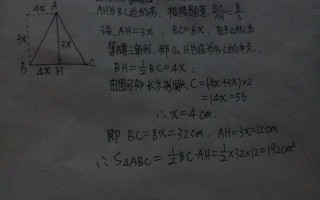 A
3x
3x
4x
B
4x
H
C
AH为BC边的高, 根据题意, BC/AH = 8/3
设AH=3x, BC=8x, 由于△ABC为
等腰三角形, 那么H也应为BC的中点,
BH=1/2BC=4x;
由图可知长方形周长 C=(4x+3x)×2
=14x=56
∴x=4cm.
即 BC=8x=32cm, AH=3x=12cm
∴S△ABC=1/2BC·AH=1/2×32×12=192cm²